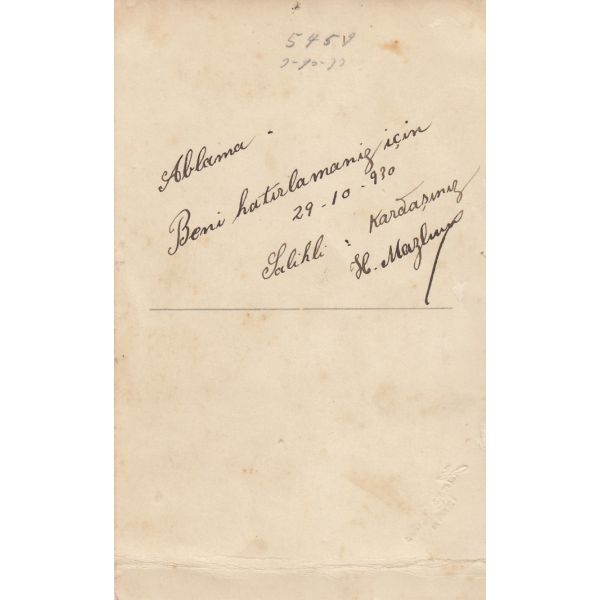 5458
Ablama.
Beni hatırlamanız için
29-10-930
Salihli : Kardaşınız
H. Mazlum